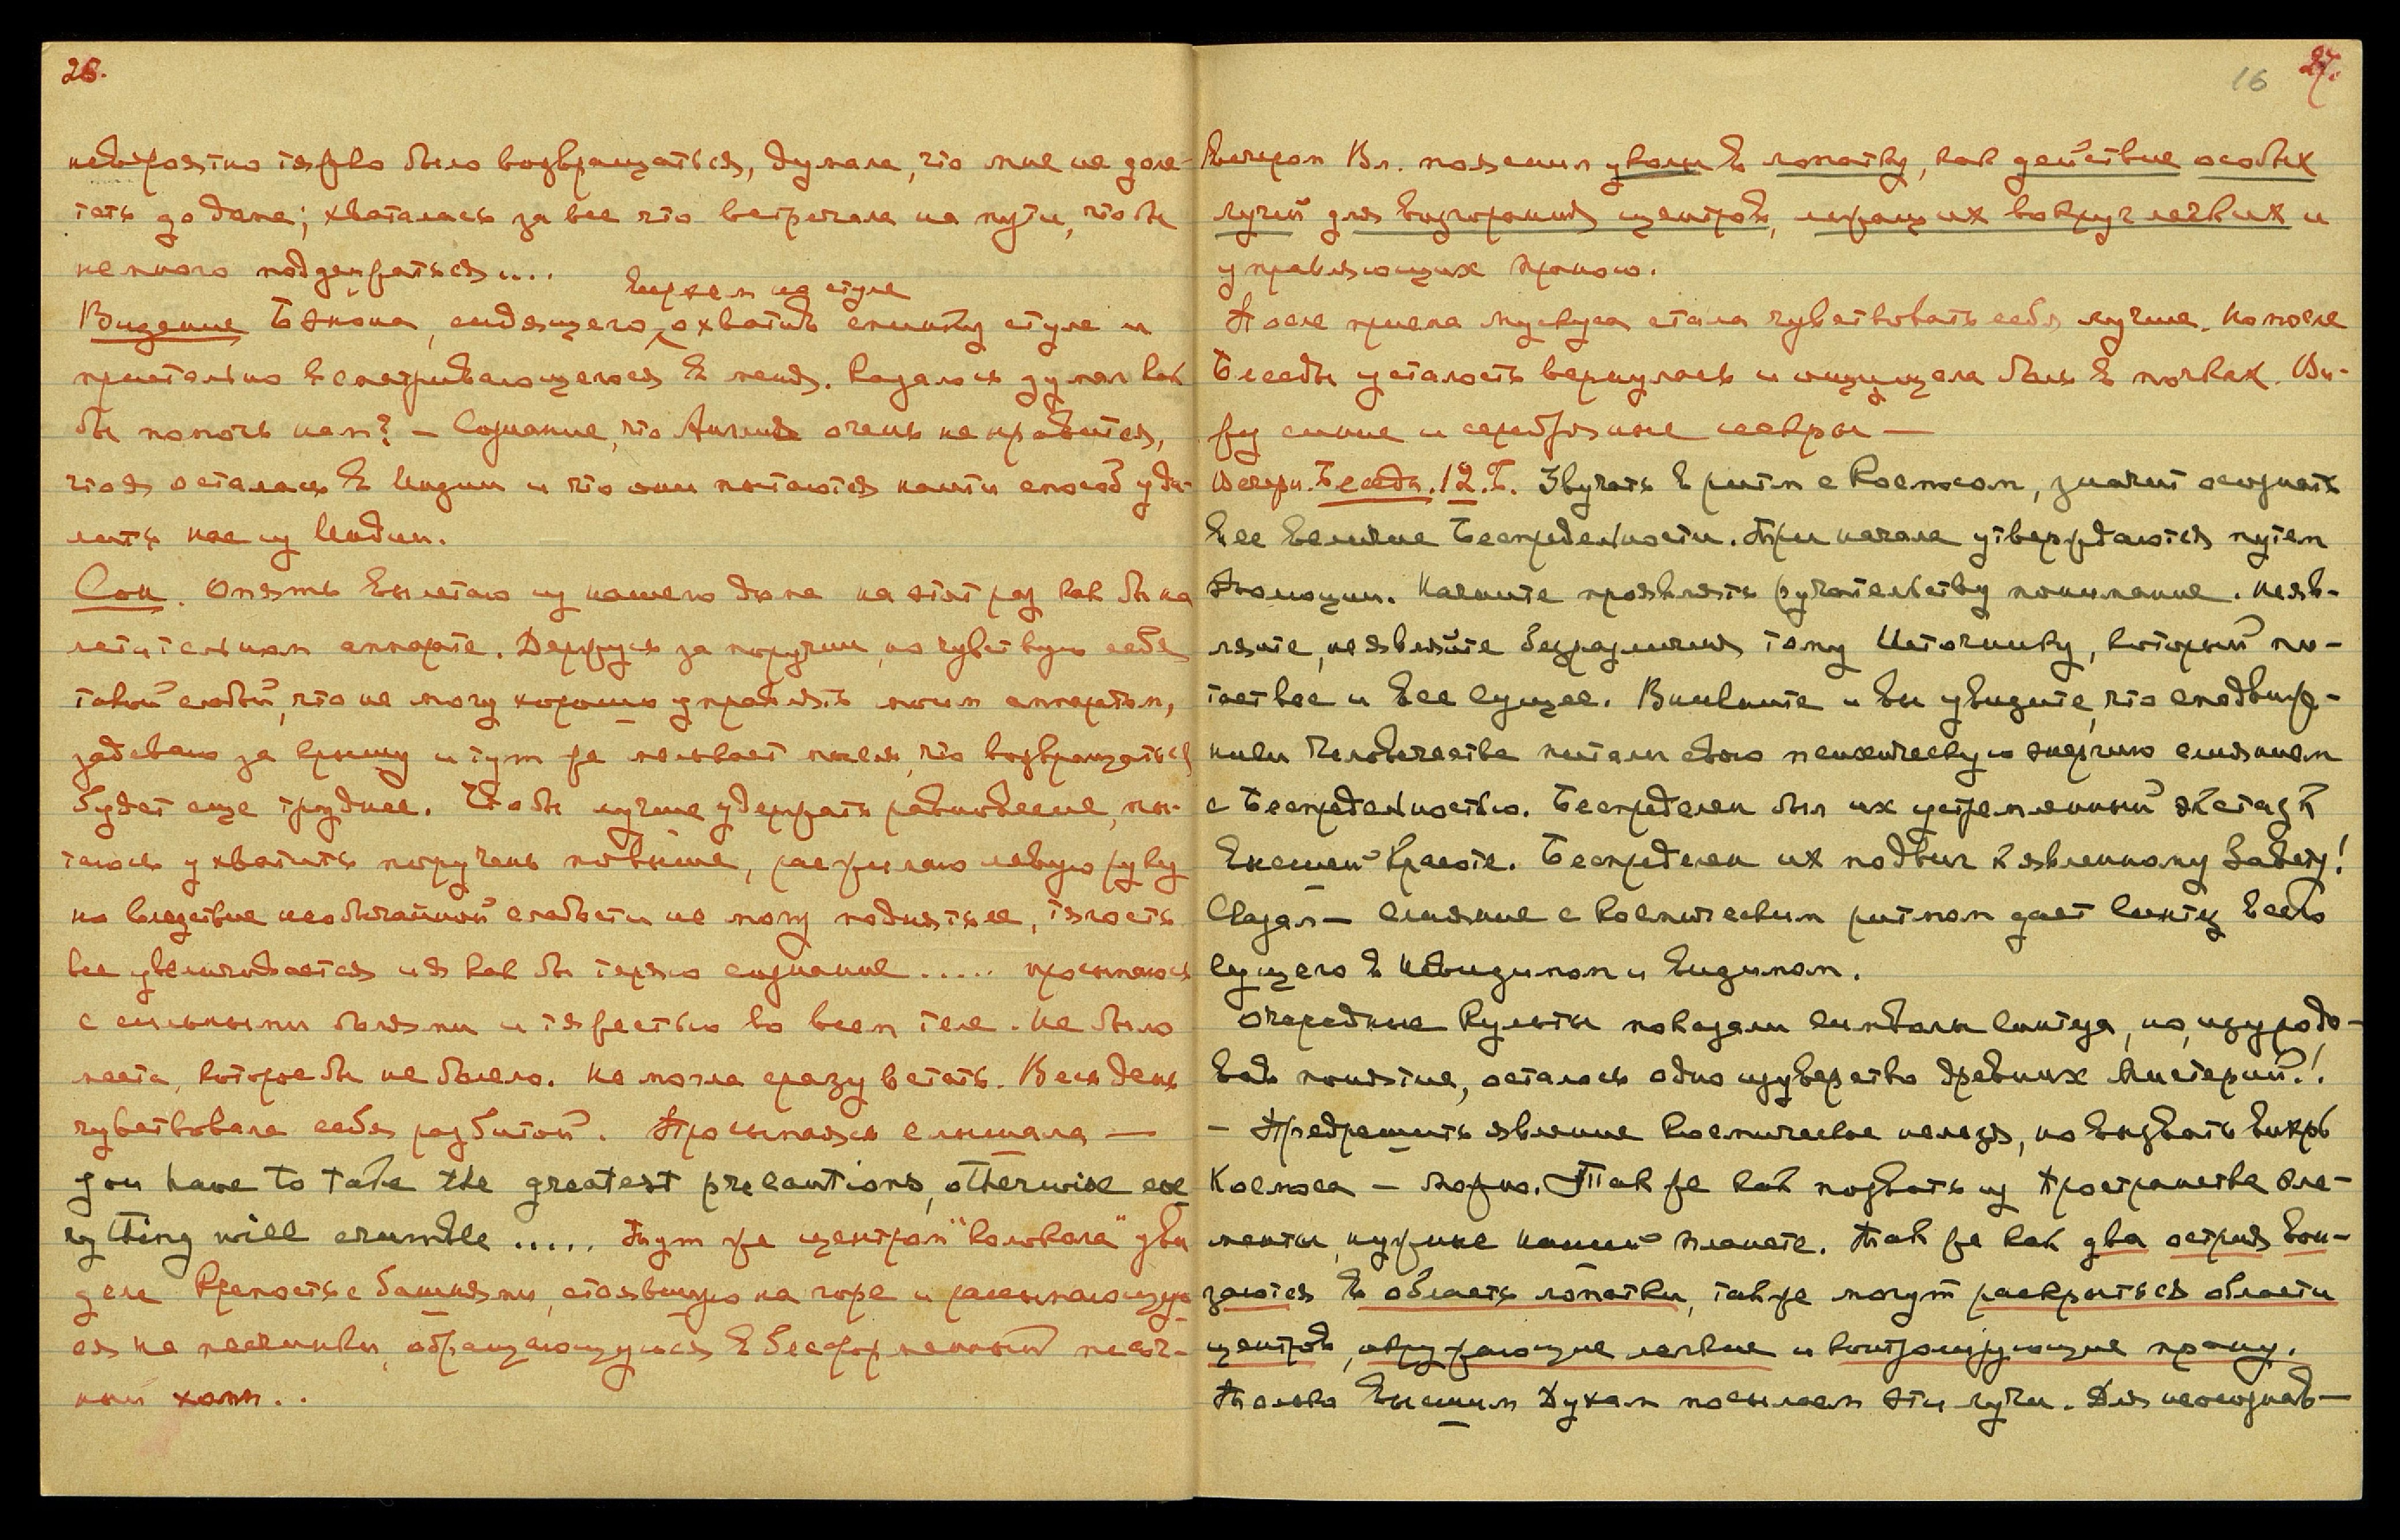 26.
невероятно тяжко было возвращаться, думала, что мне не доле-
теть до дома; хваталась за все что встречала на пути, чтобы
немного поддержаться...
верхом на стуле
Видение Бэкона, сидящего, охватив спинку стула и
пристально всматривающегося в меня. Казалось думал как
бы помочь нам? — Сознание, что Англии очень не нравится,
что я осталась в Индии и что они пытаются найти способ уда-
лить нас из Индии.
Сон. Опять вылетаю из нашего дома на этот раз как бы на
летительном аппарате. Держусь за поручни, но чувствую себя
такой слабой, что не могу хорошо управлять моим аппаратом,
задеваю за крышу и тут же мелькает мысль, что возвращаться
будет еще труднее. Чтобы лучше удержать равновесие, пы-
таюсь ухватить поручень повыше, разжимаю левую руку
но вследствие необычайной слабости не могу поднять ее, тягость
все увеличивается и я как бы теряю сознание ..... просыпаюсь
с сильными болями и тяжестью во всем теле. Не было
места, которое бы не болело. Не могла сразу встать. Весь день
чувствовала себя разбитой. Просыпаясь слышала —
you have to take the greatest precautions, otherwise eve
rything will crumble ..... Тут же центром "колокола" уви
дела Крепость с башнями, стоявшую на горе и рассыпающую
ся на песчинки, обращающуюся в бесформенный песоч-
ный холм..
16 27.
Вечером Вл. пояснил уколы в лопатку, как действие особых
лучей для возгорания центров, лежащих вокруг легких и
управляющих праною.
После приема мускуса стала чувствовать себя лучше. Но после
Беседы усталость вернулась и ощущала боль в почках. Ви-
жу синие и серебряные искры —
Вечерн. Беседа. 12. Б. Звучать в ритм с Космосом, значит осознать
все величие Беспредельности. Три начала утверждаются путем
Эволюции. Начните проявлять ручательству понимание. Не яв-
ляйте, не являйте безразличия тому Источнику, который пи-
тает все и все сущее. Вникните и вы увидите, что сподвиж-
ники Человечества питали свою психическую энергию слиянием
с Беспредельностью. Беспределен был их устремленный экстаз к
Высшей Красоте. Беспределен их подвиг к явленному Завету!
Сказал — слияние с космическим ритмом дает синтез всего
сущего в Невидимом и видимом.
Очередные культы показали символы синтеза, но, изуродо-
вав понятие, осталось одно изуверство древних Мистерий!.
— Предрешить явление космическое нельзя, но вызвать вихрь
Космоса — можно. Так же как позвать из Пространства эле-
менты, нужные нашей планете. Так же как два острия вон-
заются в область лопатки, также могут раскрыться области
центров, окружающие легкие и контролирующие прану.
Только Высшим Духам посылаем эти лучи. Для неосознав—